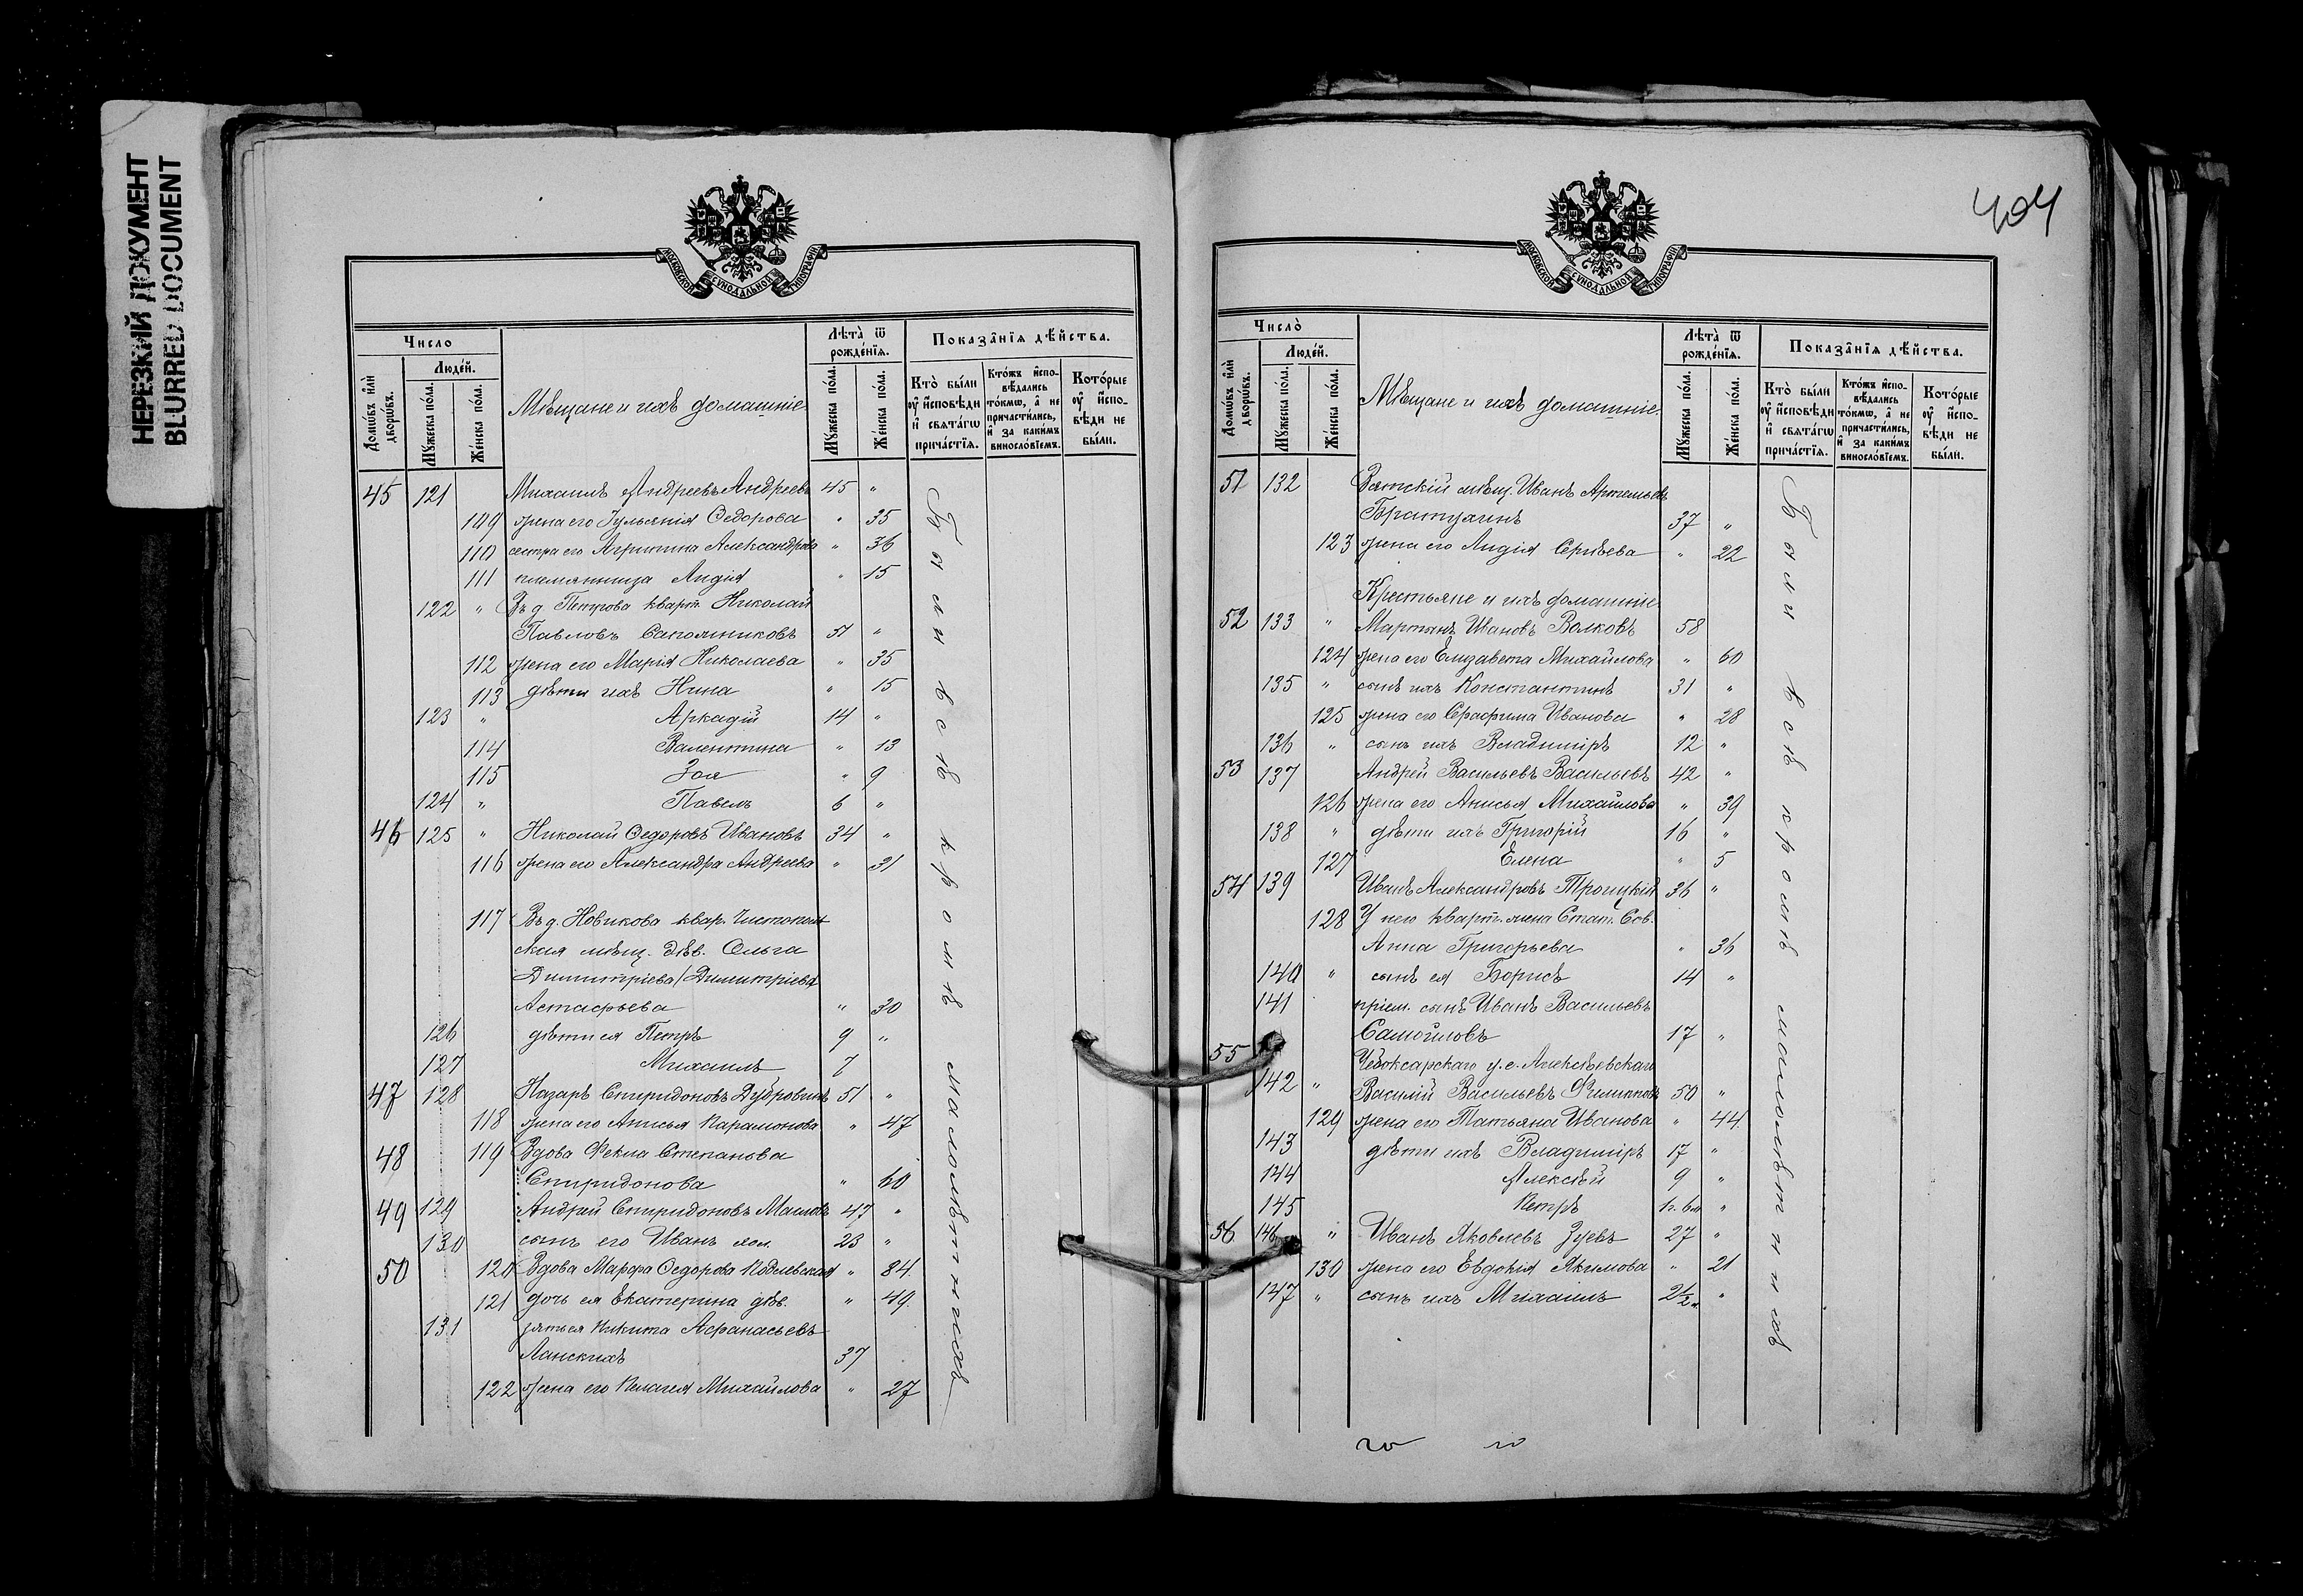 НЕРЕЗКИЙ ДОКУМЕНТ
BLURRED DOCUMENT
МОСКОВСКОЙ СѴНОДАЛЬНОЙ ТИПОГРАФІИ
Число
Домѡвъ и҆лѝ дворѡвъ.
Люде́й.
Мꙋ́жеска по́ла.
Же́нска по́ла.
Мѣщане и ихъ домашніе
Лѣта̀ ѿ рожде́нїя.
Мꙋ́жеска по́ла.
Же́нска по́ла.
Показа̑нїя дѣ́йства.
Кто̀ бы́ли оу҆ и҆сповѣди и҆ свята́гѡ прича́стїя.
Кто́жъ и҆спо-вѣдались то́кмѡ, а҆ не причасти́лись, и҆ за каки́мъ винословїемъ.
Кото́рые оу҆ и҆спо-вѣди не бы́ли.
45 121 Михаилъ Андреевъ Андреевъ 45 "
109 жена его Іульянія Ѳедорова " 35
110 сестра его Агрипина Александрова " 36
111 племянница Лидія " 15
122 " Въ д. Петрова кварт. Николай
Павловъ Сапожниковъ 51 "
112 жена его Марія Николаева " 35
113 дѣти ихъ Нина " 15
123 " Аркадій 14 "
114 Валентина " 13
115 Зоя " 9
124 " Павелъ 6 "
46 125 " Николай Ѳедоровъ Ивановъ 34 "
116 жена его Александра Андреева " 31
117 Въ д. Новикова квар. Чистополь
ская мѣщ. дѣв. Ольга
Димитріева /Димитріева
Астафьева " 30
126 дѣти ея Петръ 9 "
127 Михаилъ 7
47 128 Назаръ Спиридоновъ Дубровинъ 51 "
118 жена его Анисья Парамонова " 47
48 119 Вдова Фекла Степанова
Спиридонова " 60
49 129 Андрей Спиридоновъ Масловъ 47 "
130 сынъ его Иванъ хол. 23 "
50 120 Вдова Марфа Ѳедорова " 84
121 дочь ея Екатерина дѣв. " 49
131 зять ея Никита Афанасьевъ
Ланскихъ 37
122 жена его Пелагея Михайлова " 27
Были всѣ кромѣ малолѣтнихъ
404
МОСКОВСКОЙ СѴНОДАЛЬНОЙ ТИПОГРАФІИ
Число̀
Домѡвъ и҆лѝ дворѡвъ.
Люде́й.
Мꙋ́жеска по́ла.
Же́нска по́ла.
Мѣщане и ихъ домашніе.
Лѣта̀ ѿ рожде́нїя.
Мꙋ́жеска по́ла.
Же́нска по́ла.
Показа̑нїя дѣ́йства.
Кто̀ бы́ли оу҆ и҆сповѣди и҆ свята́гѡ прича́стїя.
Кто́жъ и҆спо-вѣдались то́кмѡ, а҆ не причасти́лись, и҆ за каки́мъ винословїемъ.
Кото́рые оу҆ и҆спо-вѣди не бы́ли.
51 132 Вятскій мѣщ. Иванъ Артемьевъ
Братухинъ 37 "
123 жена его Лидія Сергѣева " 22
Крестьяне и ихъ домашніе
52 133 " Мартынъ Ивановъ Волковъ 58
124 жена его Елизавета Михайлова " 60
135 " сынъ ихъ Константинъ 31 "
125 жена его Серафима Иванова " 28
136 " сынъ ихъ Владиміръ 12 "
53 137 Андрей Васильевъ Васильевъ 42 "
126 жена его Анисья Михайлова " 39
138 " дѣти ихъ Григорій 16 "
127 Елена " 5
54 139 Иванъ Александровъ Троицкій 36 "
128 У него кварт. жена Стат. Сов.
Анна Григорьева " 36
140 " сынъ ея Борисъ 14 "
141 пріем. сынъ Иванъ Васильевъ
Самойловъ 17 "
55 Чебоксарскаго у. с. Алексѣевскаго
142 " Василій Васильевъ Филипповъ 50 "
129 жена его Татьяна Иванова " 44
143 дѣти ихъ Владиміръ 17 "
144 Алексѣй 9 "
145 Петръ 1г. 6м "
56 146 " Иванъ Яковлевъ Зуевъ 27 "
130 жена его Евдокія Якимова " 21
147 " сынъ ихъ Михаилъ 2½ "
Были всѣ кромѣ малолѣтнихъ